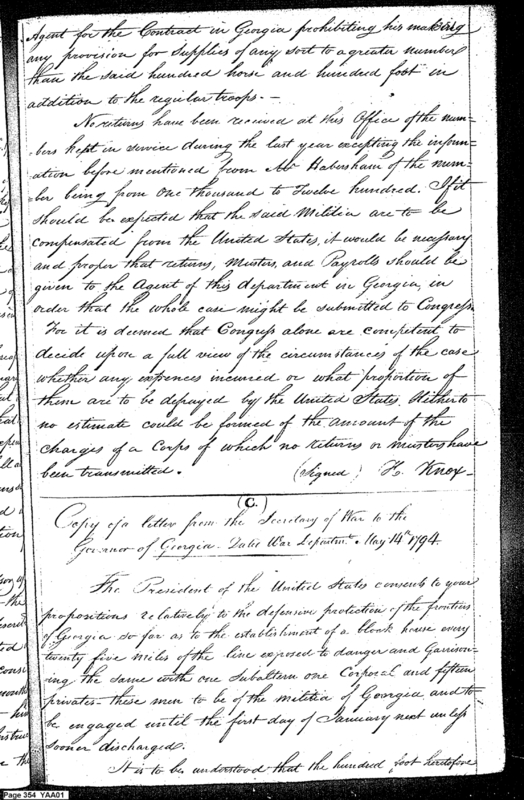 Agent for the Contract in Georgia prohibiting his making
any provision for supplies of any sort to a greater number
than the said hundred horse and hundred foot in
addition to the regular troops.—
No returns have been received at this Office of the num-
bers kept in service during the last year excepting the inform-
ation before mentioned from Mr Habersham of the num-
ber being from One thousand to Twelve hundred. If it
should be expected that the said Militia are to be
compensated from the United States, it would be necessary
and proper that returns, Musters, and Payrolls should be
given to the Agent of this department in Georgia, in
order that the whole case might be submitted to Congress
For it is deemed that Congress alone are competent to
decide upon a full view of the circumstances of the case
whether any expences incured or what proportion of
them are to be defrayed by the United States. Hitherto
no estimate could be formed of the amount of the
charges of a Corps of which no returns or musters have
been transmitted.
(signed) H. Knox—
(C.)
Copy of a letter from the Secretary of War to the
Governor of Georgia. Dated War Departmt. May 14th 1794.
The President of the United States consents to your
propositions relatively to the defensive protection of the frontiers
of Georgia so far as to the establishment of a block house every
twenty five miles of the line exposed to danger and Garrison-
ing the same with one subaltern one Corporal and fifteen
privates—these men to be of the militia of Georgia and to
be engaged until the first day of January next unless
sooner discharged.
It is to be understood that the hundred foot heretofore
Page 354 YAA01